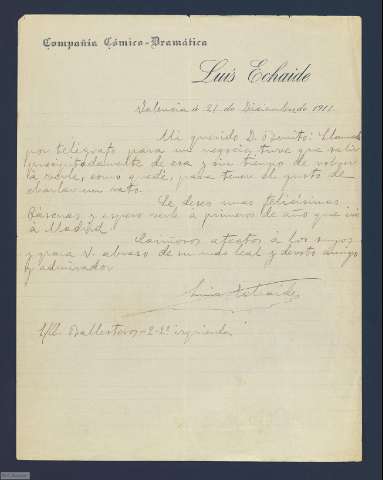 Compañia Cómico-Dramática
Luis Echaide
Valencia á 21 de Diciembre de 1911
Mi querido D. Benito: Llamado
por telégrafo para un negocio tuve que salir
de esa y sin tiempo de volver
á verle, como quedé, para tener el gusto de
charlar un rato.
Le deseo unas felicísimas
Páscuas y espero verle á primeros de año que iré
á Madrid.
Cariñosos afectos á los suyos
y para V. abrazo de su más leal y devoto amigo
y admirador
Luis Echaide
Ballesteros-2-2º izquierda